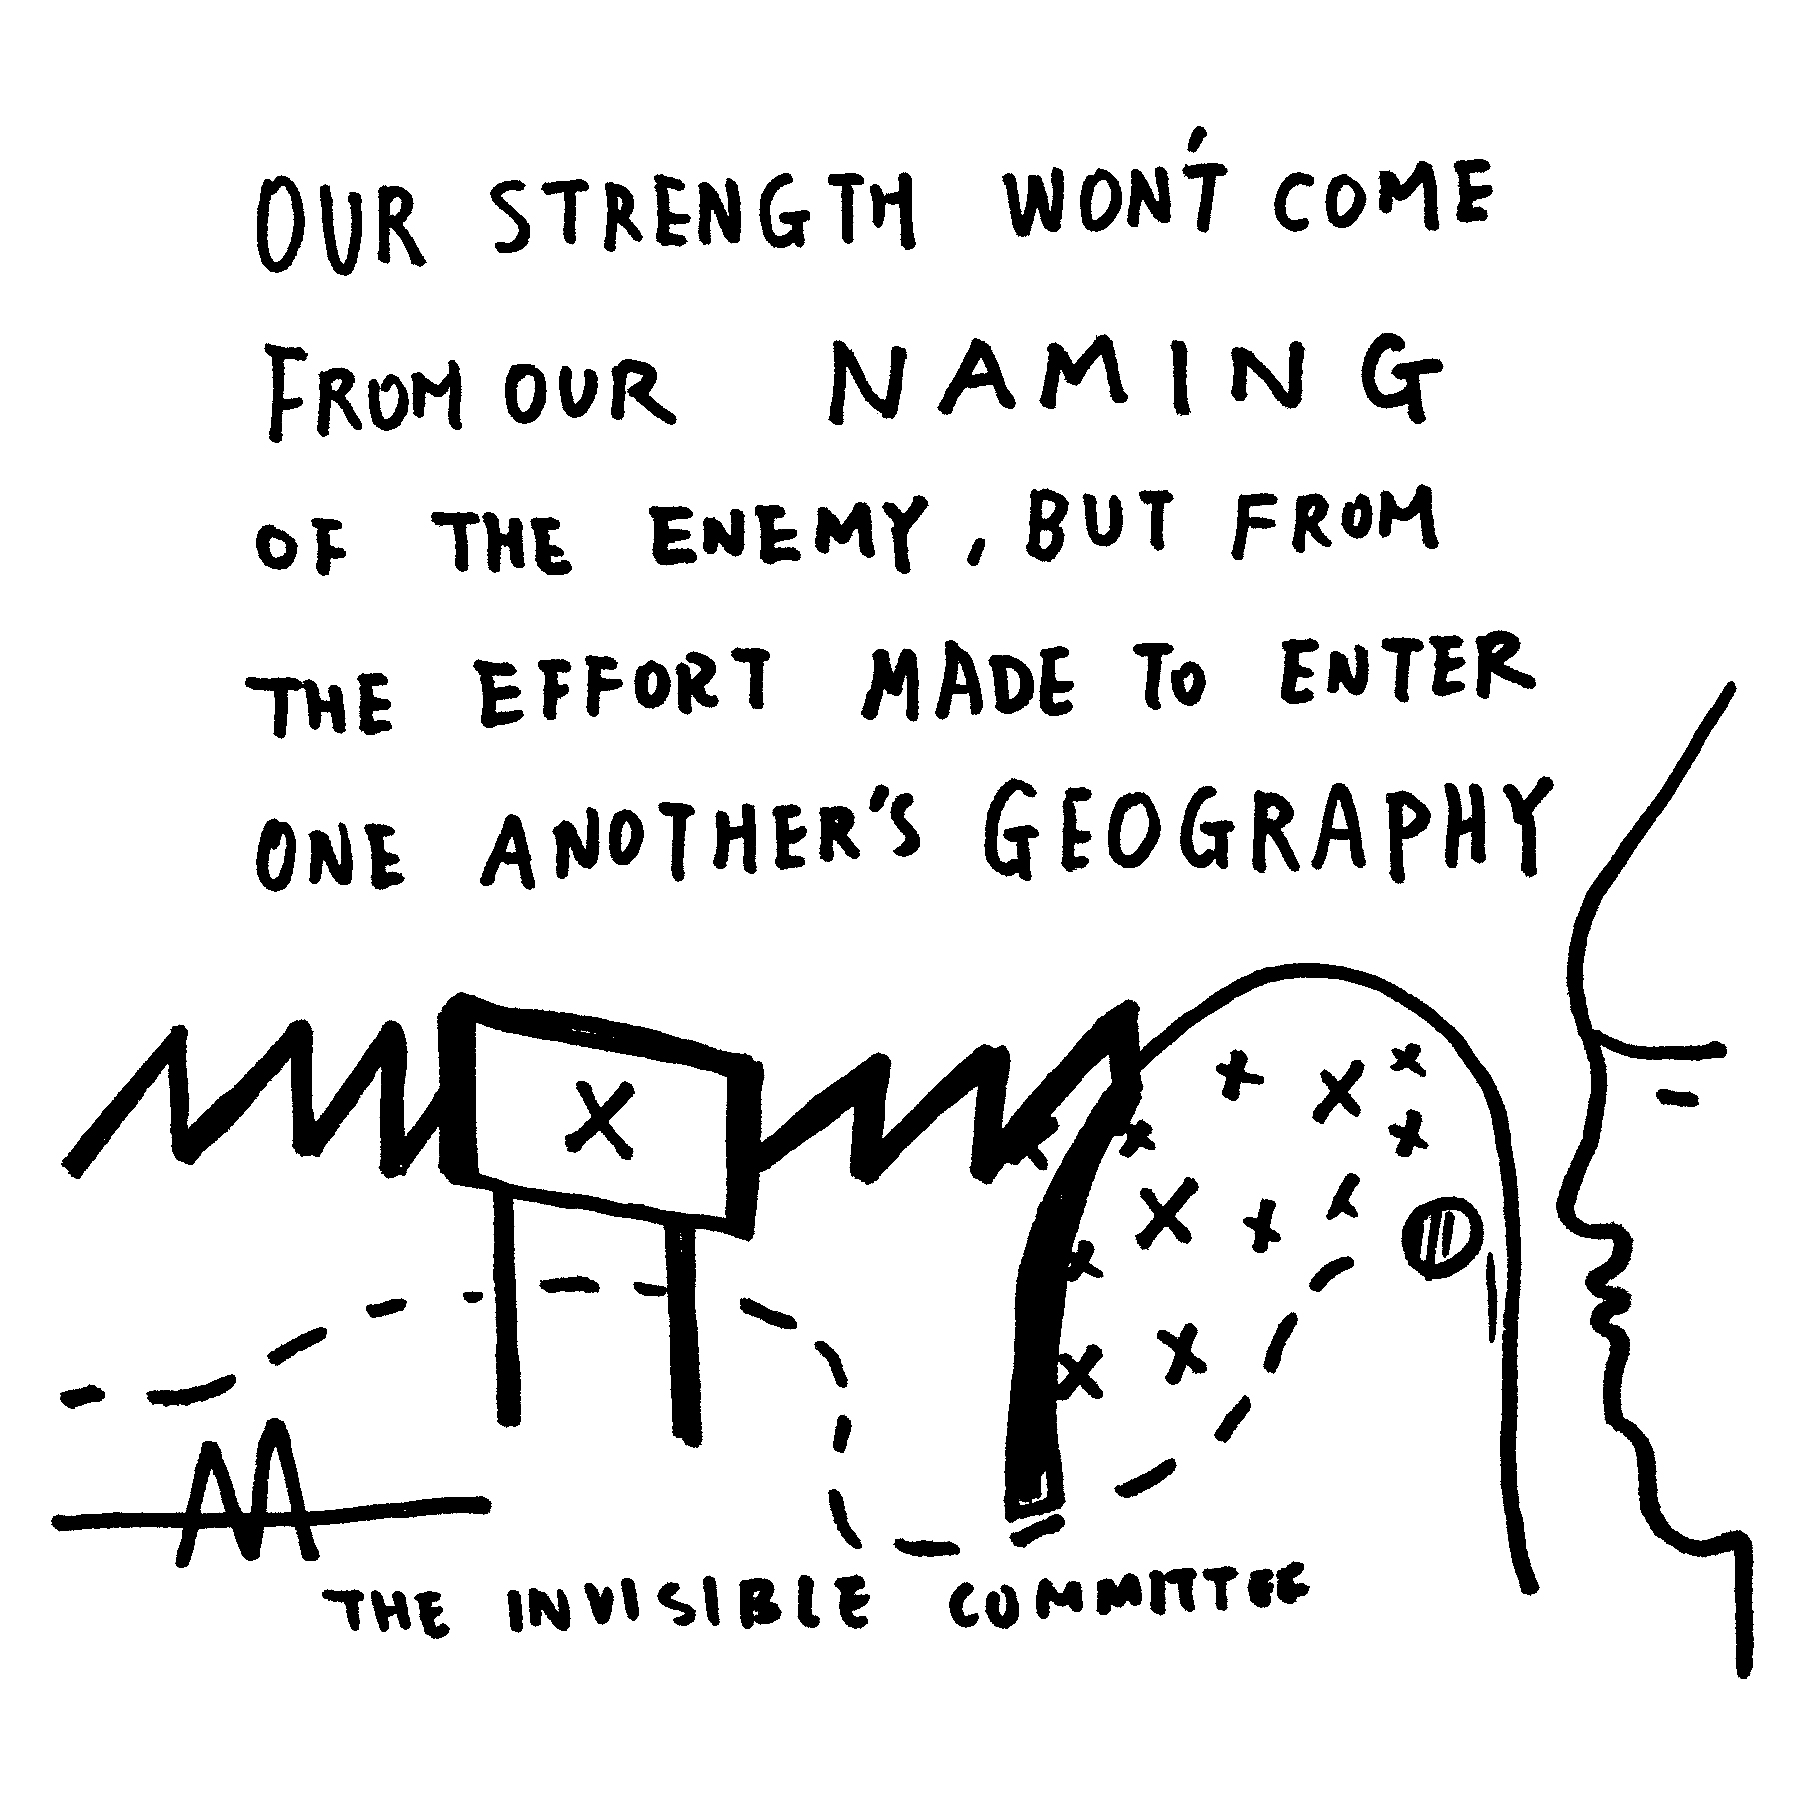 OUR STRENGTH WON'T COME
FROM OUR NAMING
OF THE ENEMY, BUT FROM
THE EFFORT MADE TO ENTER
ONE ANOTHER'S GEOGRAPHY
THE INVISIBLE COMMITTEE